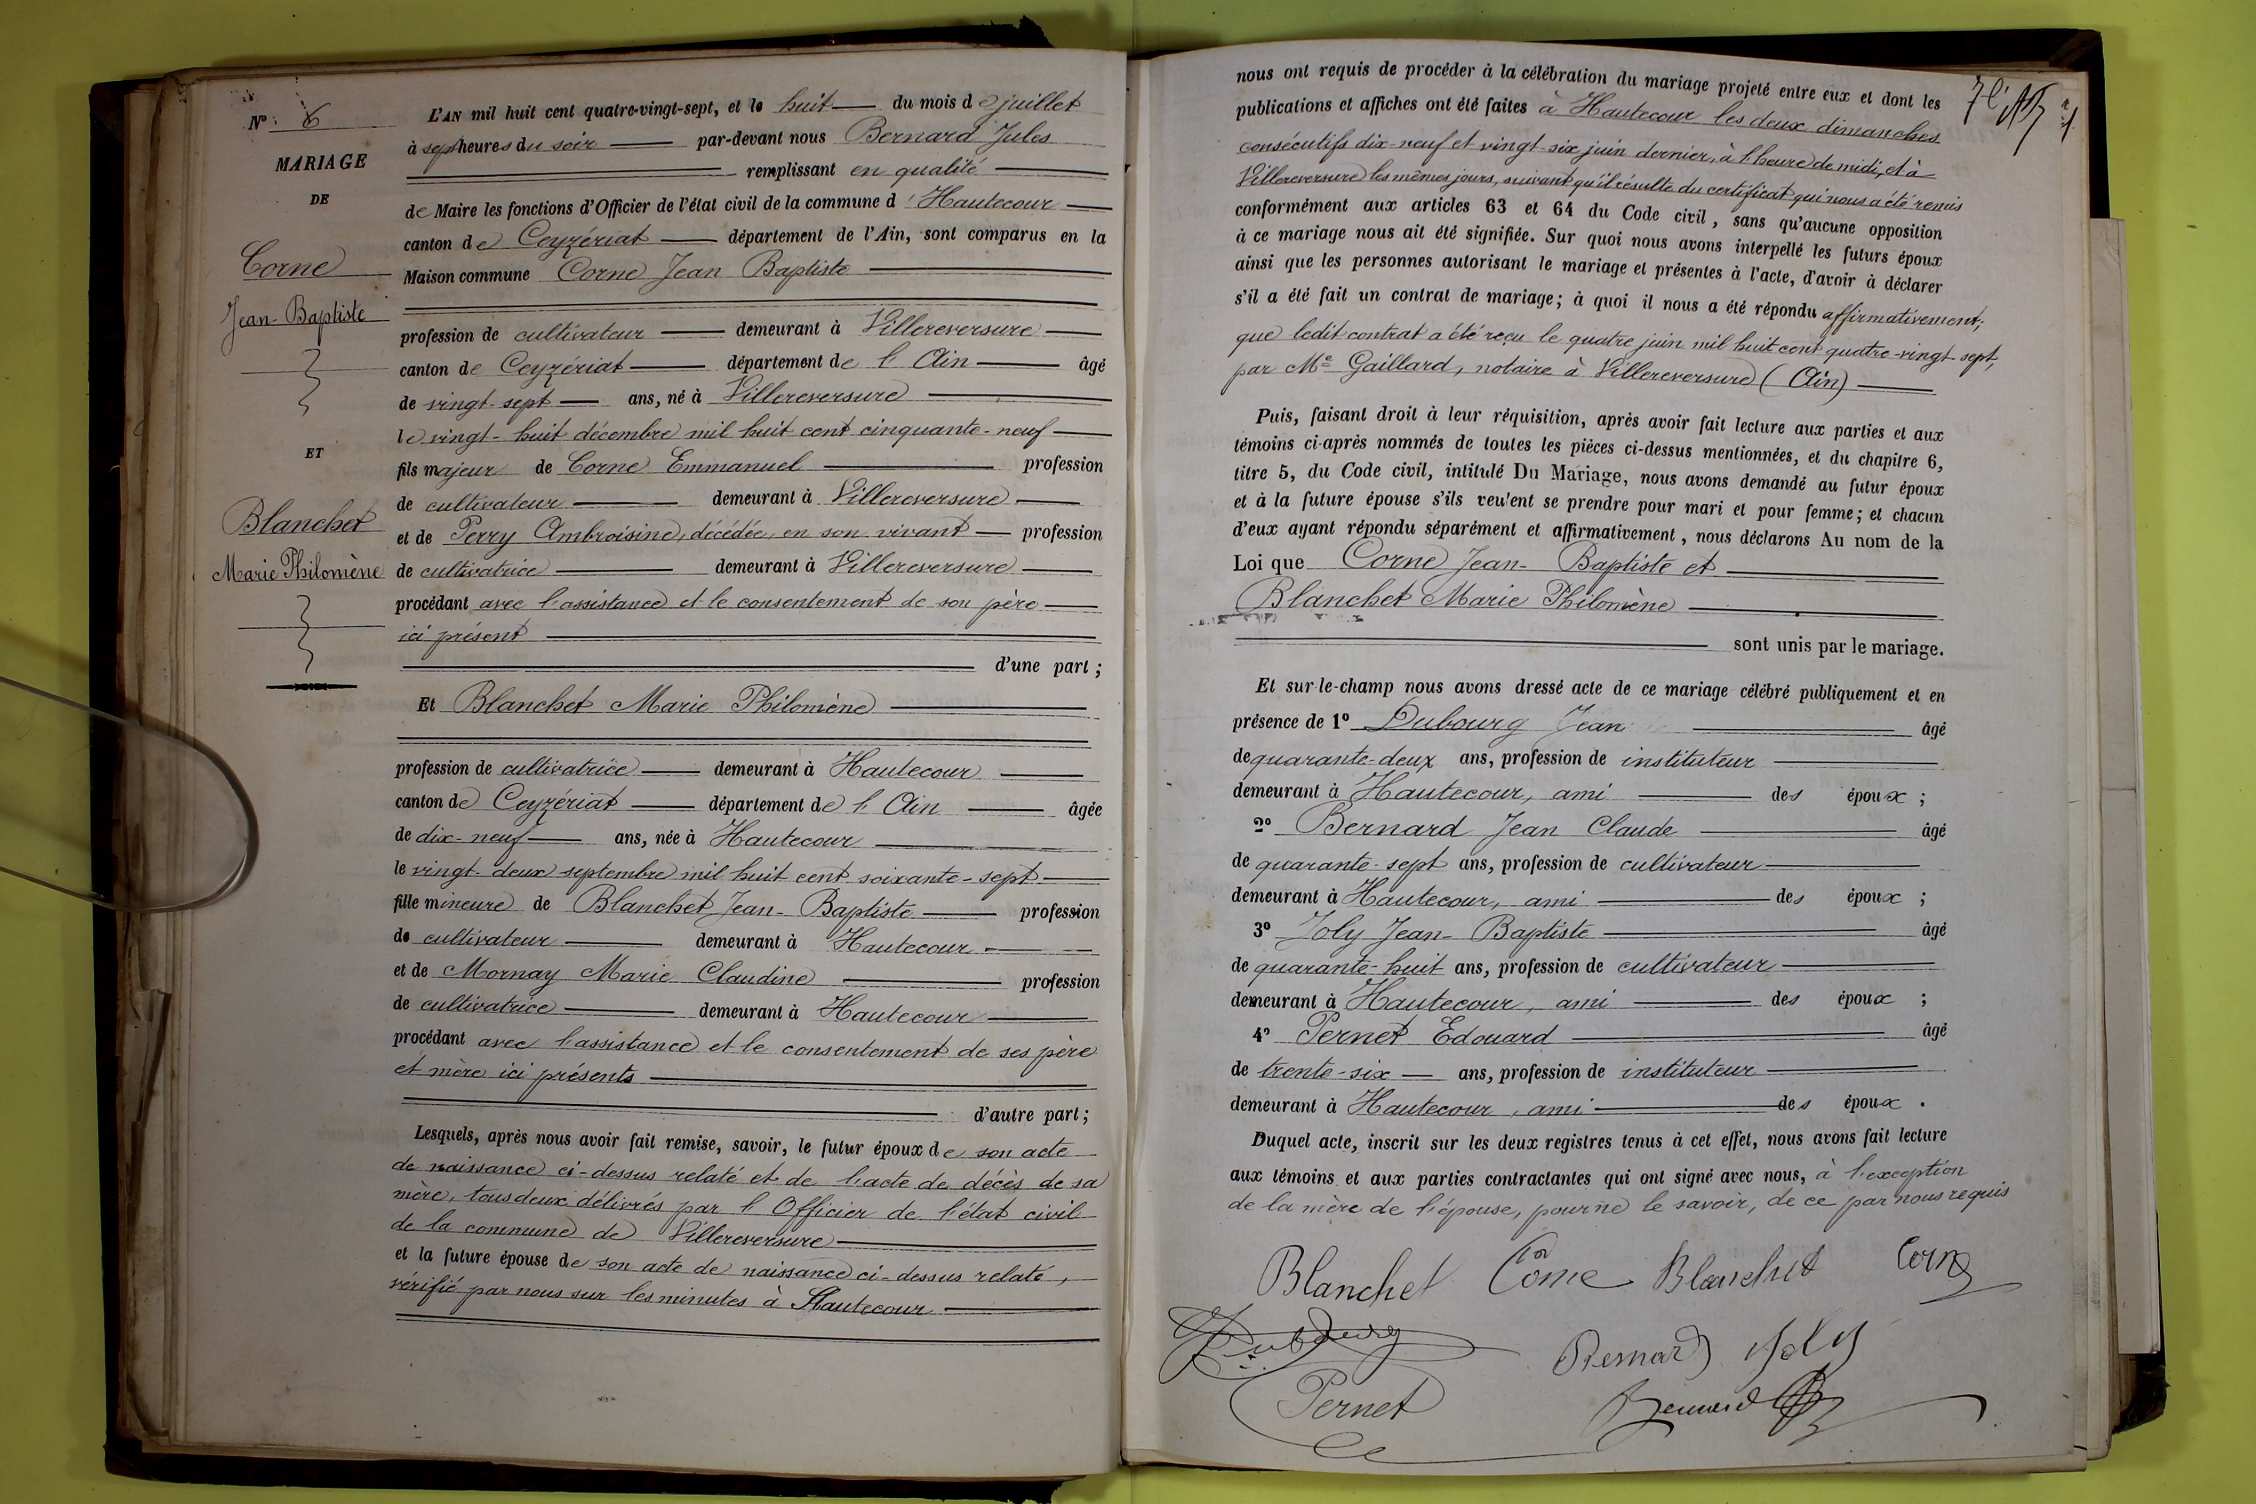 Nº 6
MARIAGE
DE
Corne
Jean-Baptiste
ET
Blanchet
Marie Philomène
L'AN mil huit cent quatre-vingt-sept, et le huit du mois de juillet
à sept heures du soir par-devant nous Bernard Jules
remplissant en qualité
de Maire les fonctions d'Officier de l'état civil de la commune d'Hautecour
canton de Ceyzériat département de l'Ain, sont comparus en la
Maison commune Corne Jean Baptiste
profession de cultivateur demeurant à Villereversure
canton de Ceyzériat département de l'Ain âgé
de vingt-sept ans, né à Villereversure
le vingt-huit décembre mil huit cent cinquante-neuf
fils majeur de Corne Emmanuel profession
de cultivateur demeurant à Villereversure
et de Perry Ambroisine, décédée, en son vivant profession
de cultivatrice demeurant à Villereversure
procédant avec l'assistance et le consentement de son père
ici présent
d'une part ;
Et Blanchet Marie Philomène
profession de cultivatrice demeurant à Hautecour
canton de Ceyzériat département de l'Ain âgée
de dix-neuf ans, née à Hautecour
le vingt-deux septembre mil huit cent soixante-sept
fille mineure de Blanchet Jean-Baptiste profession
de cultivateur demeurant à Hautecour
et de Mornay Marie Claudine profession
de cultivatrice demeurant à Hautecour
procédant avec l'assistance et le consentement de ses père
et mère ici présents
d'autre part ;
Lesquels, après nous avoir fait remise, savoir, le futur époux de son acte
de naissance ci-dessus relaté et de l'acte de décès de sa
mère, tous deux délivrés par l'Officier de l'état civil
de la commune de Villereversure
et la future épouse de son acte de naissance ci-dessus relaté,
vérifié par nous sur les minutes à Hautecour
nous ont requis de procéder à la célébration du mariage projeté entre eux et dont les
publications et affiches ont été faites à Hautecour les deux dimanches
consécutifs dix-neuf et vingt-six juin dernier, à l'heure de midi, et à
Villereversure les mêmes jours, suivant qu'il résulte du certificat qui nous a été remis
conformément aux articles 63 et 64 du Code civil, sans qu'aucune opposition
à ce mariage nous ait été signifiée. Sur quoi nous avons interpellé les futurs époux
ainsi que les personnes autorisant le mariage et présentes à l'acte, d'avoir à déclarer
s'il a été fait un contrat de mariage; à quoi il nous a été répondu affirmativement;
que ledit contrat a été reçu le quatre juin mil huit cent quatre-vingt-sept,
par Me Gaillard, notaire à Villereversure (Ain)
Puis, faisant droit à leur réquisition, après avoir fait lecture aux parties et aux
témoins ci-après nommés de toutes les pièces ci-dessus mentionnées, et du chapitre 6,
titre 5, du Code civil, intitulé Du Mariage, nous avons demandé au futur époux
et à la future épouse s'ils veulent se prendre pour mari et pour femme; et chacun
d'eux ayant répondu séparément et affirmativement, nous déclarons Au nom de la
Loi que Corne Jean-Baptiste et
Blanchet Marie Philomène
sont unis par le mariage.
Et sur-le-champ nous avons dressé acte de ce mariage célébré publiquement et en
présence de 1º Dubourg Jean âgé
de quarante-deux ans, profession de instituteur
demeurant à Hautecour, ami des époux ;
2º Bernard Jean Claude âgé
de quarante-sept ans, profession de cultivateur
demeurant à Hautecour, ami des époux ;
3º Joly Jean-Baptiste âgé
de quarante-huit ans, profession de cultivateur
demeurant à Hautecour, ami des époux ;
4º Pernet Edouard âgé
de trente-six ans, profession de instituteur
demeurant à Hautecour, ami des époux.
Duquel acte, inscrit sur les deux registres tenus à cet effet, nous avons fait lecture
aux témoins et aux parties contractantes qui ont signé avec nous, à l'exception
de la mère de l'épouse, pour ne le savoir, de ce par nous requis
Blanchet Corne Blanchet Corne
Dubourg Bernard Joly
Pernet Bernard